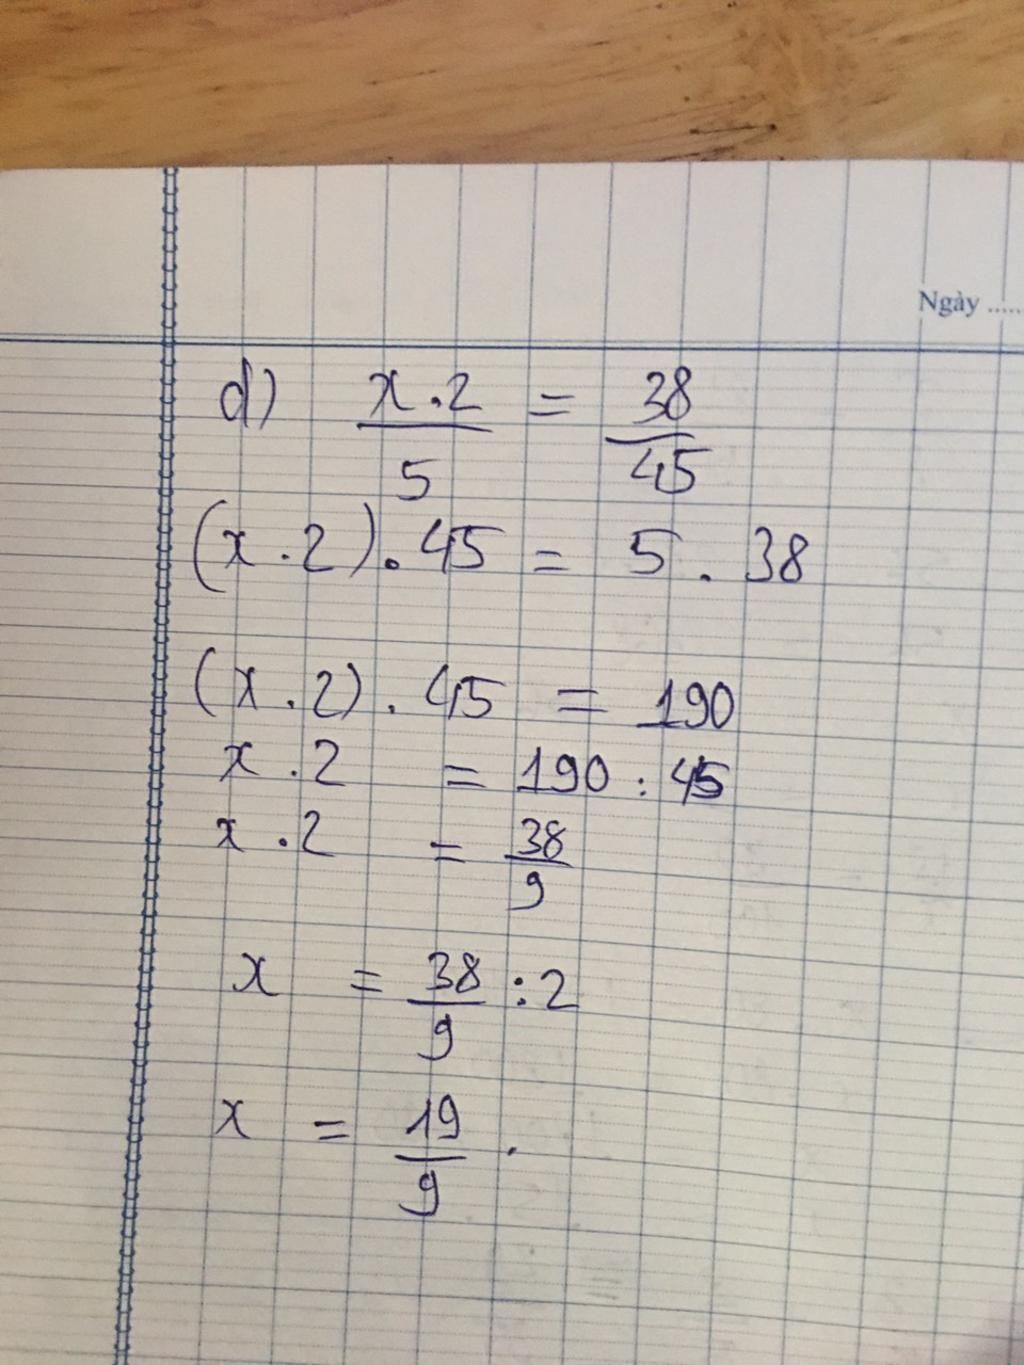 Ngày .....
d) x.2/5 = 38/45
(x.2).45 = 5.38
(x.2).45 = 190
x.2 = 190:45
x.2 = 38/9
x = 38/9 :2
x = 19/9.